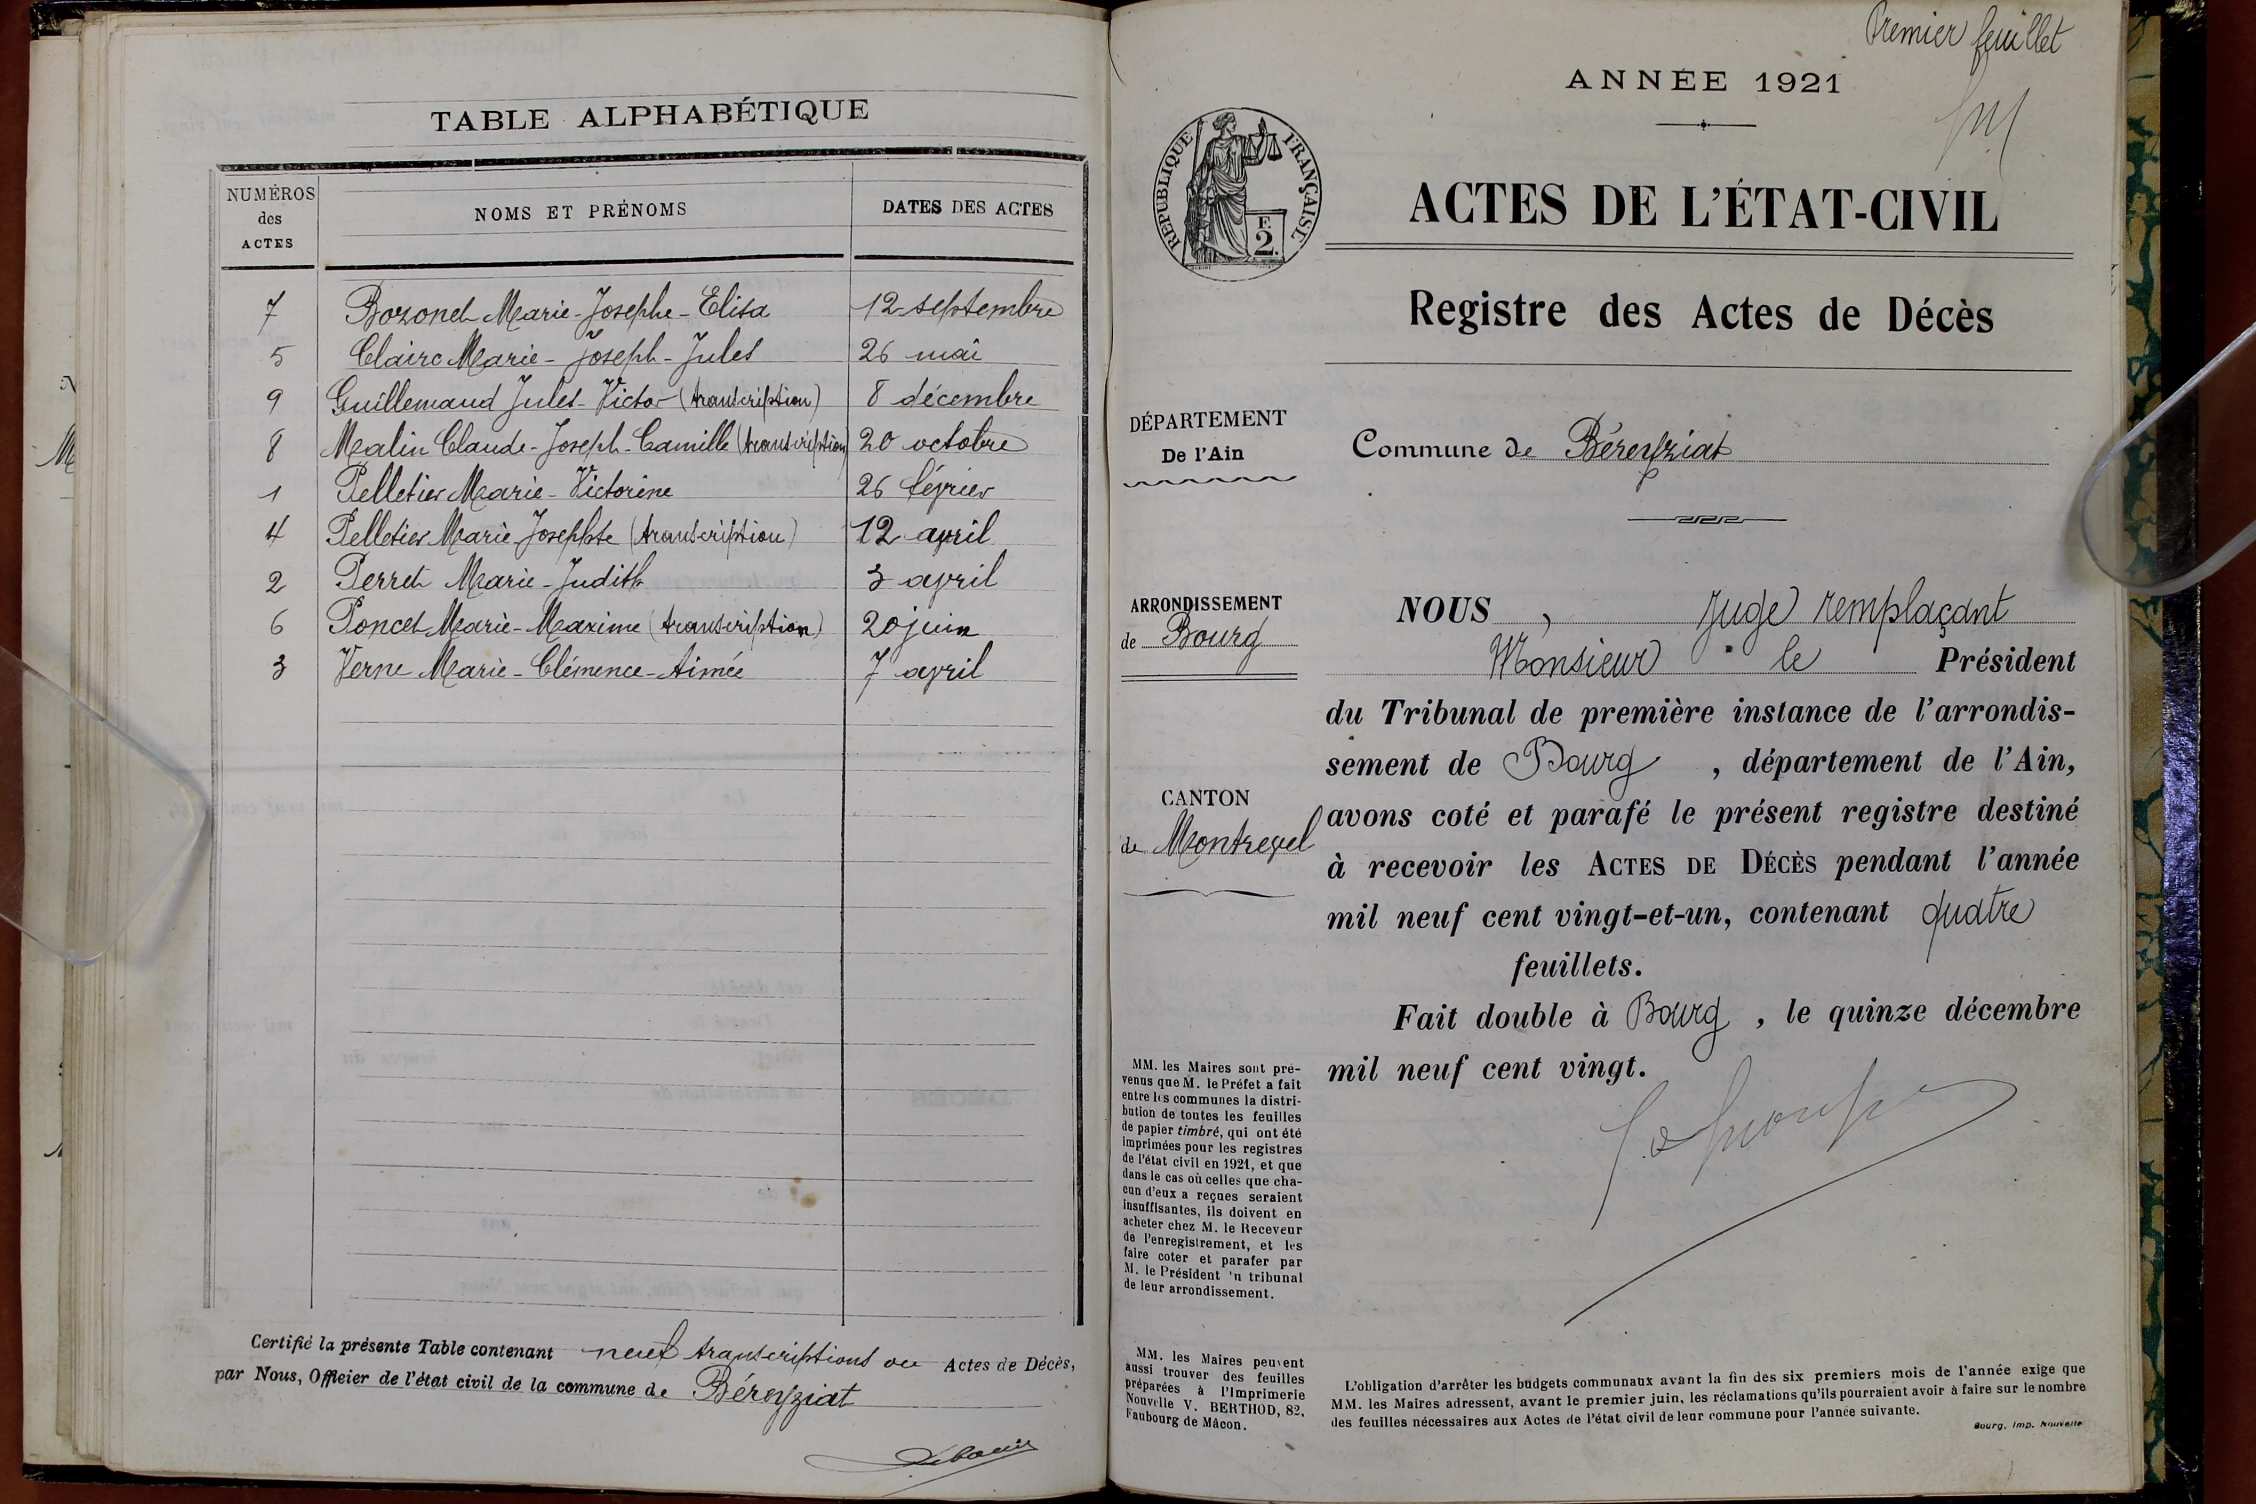 TABLE ALPHABÉTIQUE
NUMÉROS des ACTES
NOMS ET PRÉNOMS
DATES DES ACTES
7 Bozonet Marie-Josephe-Elisa 12 septembre
5 Claire Marie-Joseph-Jules 26 mai
9 Guillemaud Jules-Victor (transcription) 8 décembre
8 Malin Claude-Joseph-Camille (transcription) 20 octobre
1 Pelletier Marie-Victorine 26 février
4 Pelletier Marie Josephte (transcription) 12 avril
2 Perret Marie-Judith 3 avril
6 Poncet Marie-Maxime (transcription) 20 juin
3 Verne Marie-Clémence-Aimée 7 avril
Certifié la présente Table contenant neuf transcriptions ou Actes de Décès,
par Nous, Officier de l'état civil de la commune de Béreyziat
Premier feuillet
ANNÉE 1921
RÉPUBLIQUE FRANÇAISE
F.
2.
ACTES DE L'ÉTAT-CIVIL
Registre des Actes de Décès
DÉPARTEMENT
De l'Ain
Commune de Béreyziat
ARRONDISSEMENT
de Bourg
CANTON
de Montrevel
NOUS, Juge remplaçant
Monsieur le Président
du Tribunal de première instance de l'arrondis-
sement de Bourg, département de l'Ain,
avons coté et parafé le présent registre destiné
à recevoir les ACTES DE DÉCÈS pendant l'année
mil neuf cent vingt-et-un, contenant quatre
feuillets.
Fait double à Bourg, le quinze décembre
mil neuf cent vingt.
MM. les Maires sont pré-
venus que M. le Préfet a fait
entre les communes la distri-
bution de toutes les feuilles
de papier timbré, qui ont été
imprimées pour les registres
de l'état civil en 1921, et que
dans le cas où celles que cha-
cun d'eux a reçues seraient
insuffisantes, ils doivent en
acheter chez M. le Receveur
de l'enregistrement, et les
faire coter et parafer par
M. le Président 'u tribunal
de leur arrondissement.
MM. les Maires peuvent
aussi trouver des feuilles
préparées à l'Imprimerie
Nouvelle V. BERTHOD, 82,
Faubourg de Mâcon.
L'obligation d'arrêter les budgets communaux avant la fin des six premiers mois de l'année exige que
MM. les Maires adressent, avant le premier juin, les réclamations qu'ils pourraient avoir à faire sur le nombre
des feuilles nécessaires aux Actes de l'état civil de leur commune pour l'année suivante.
Bourg, Imp. Nouvelle